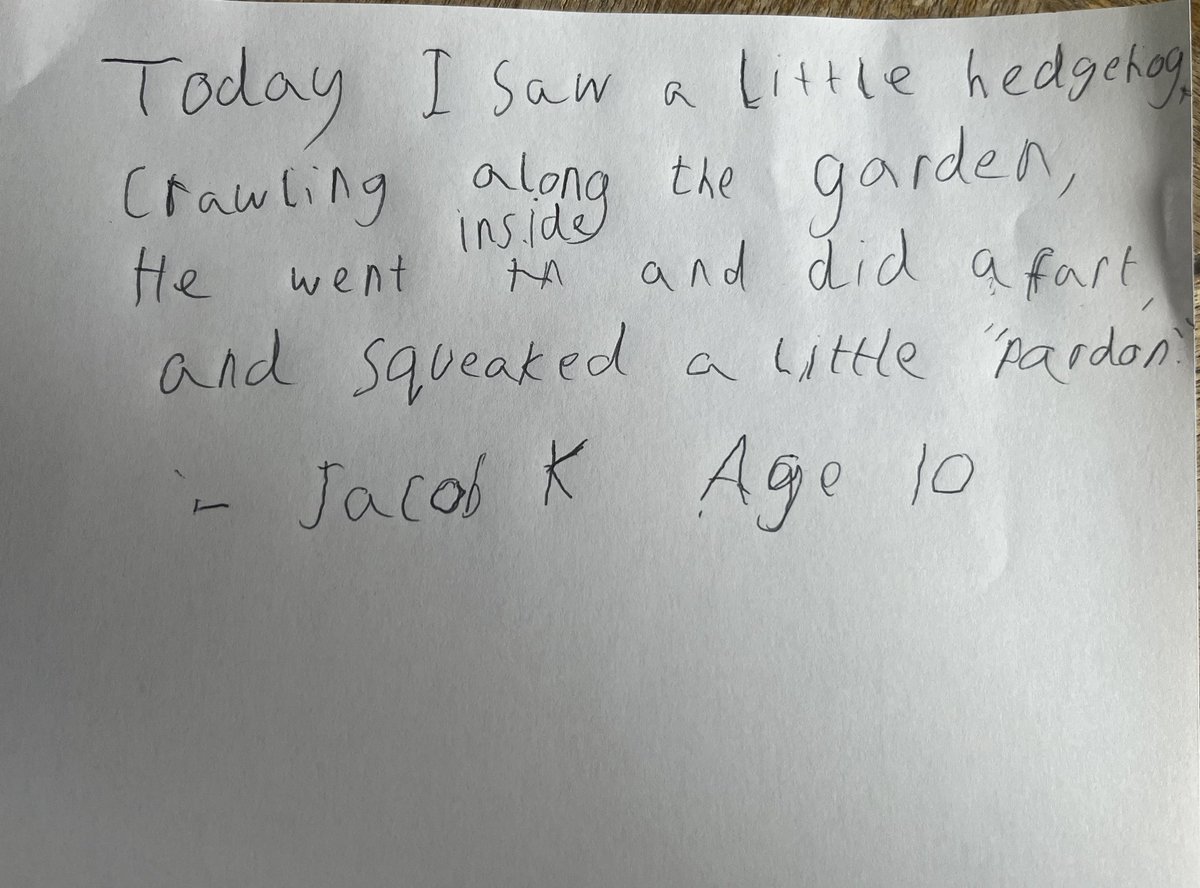 Today I saw a little hedgehog,
Crawling along the garden,
inside
He went in and did a fart,
and squeaked a little "pardon."
- Jacob K Age 10